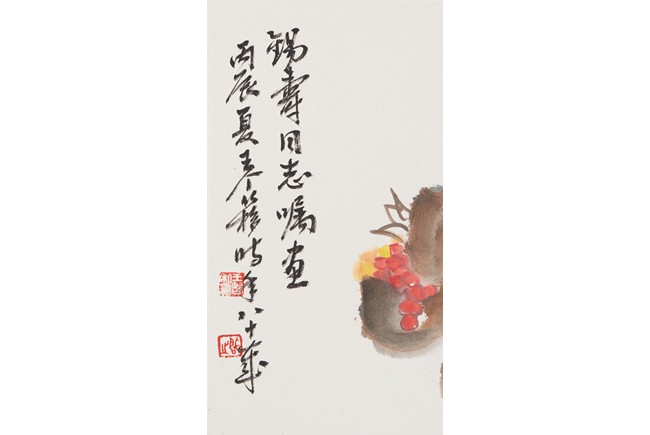 錫壽同志嘱画
丙辰夏王个簃时年八十歲